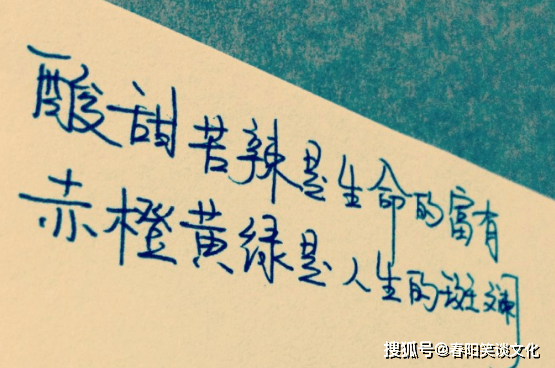 酸甜苦辣是生命的富有
赤橙黄绿是人生的斑斓
搜狐号@春阳笑谈文化